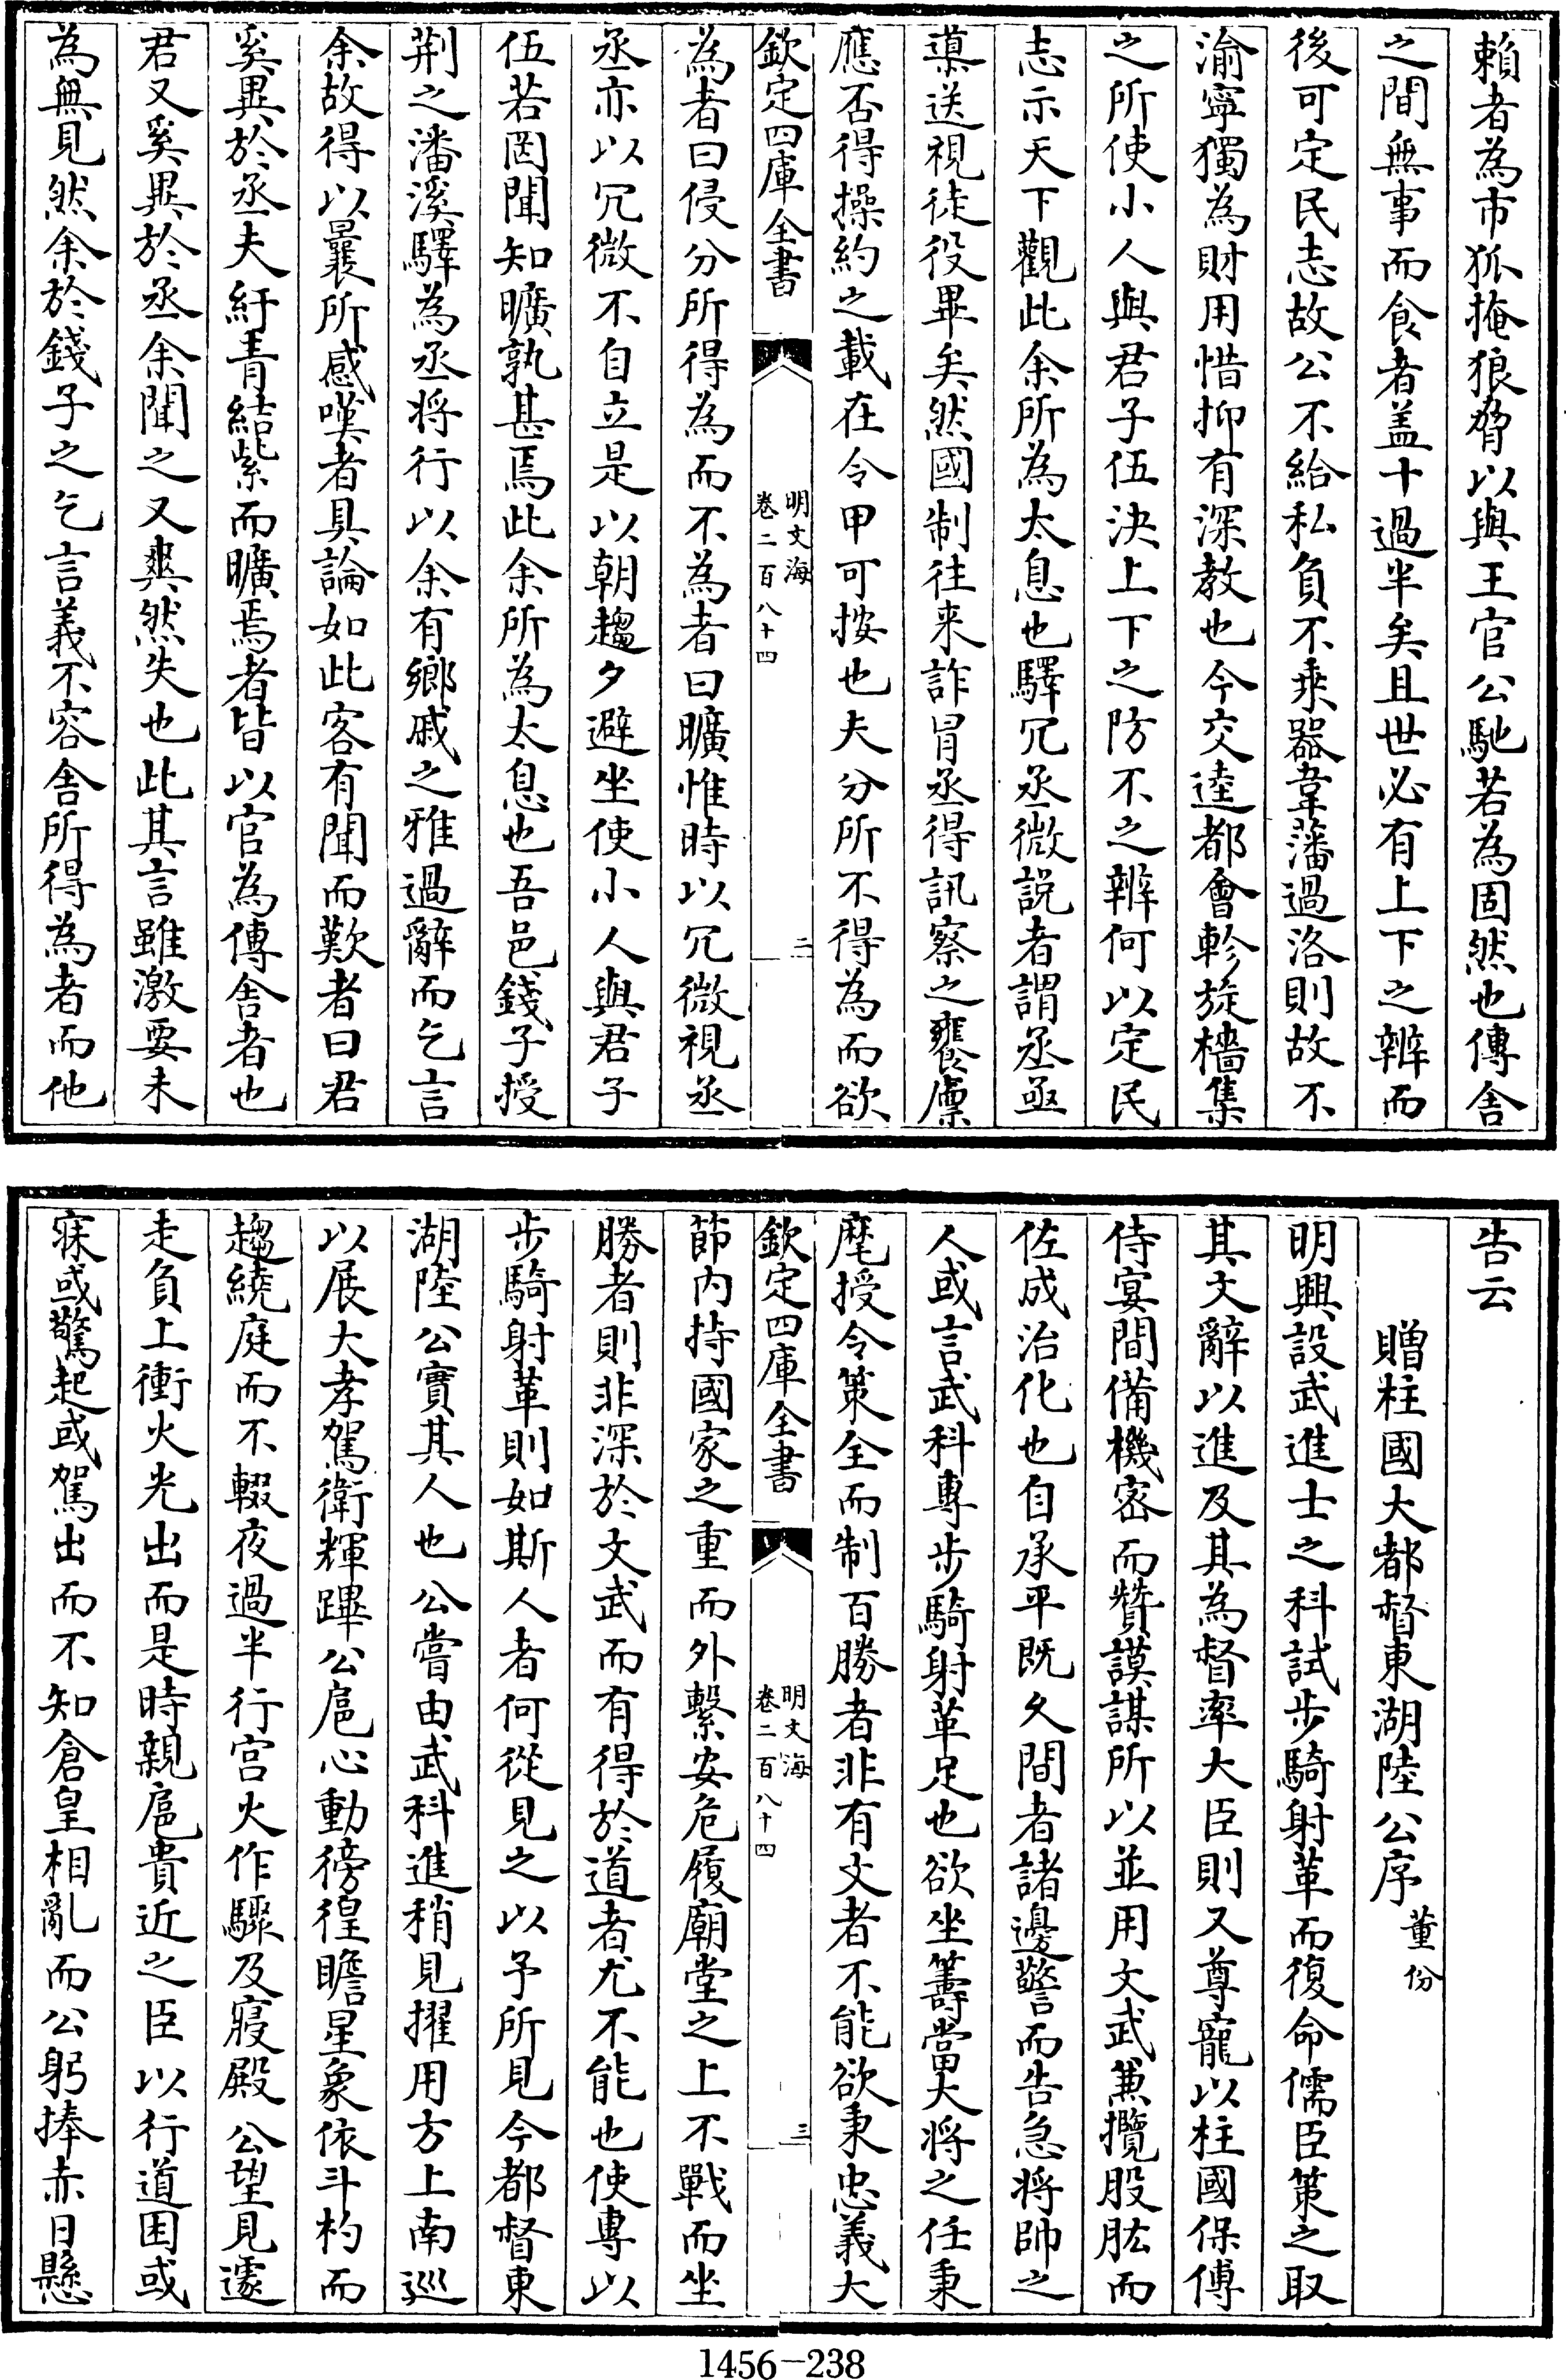 賴者為市狐掩狼脅以與王官公馳若為固然也傳舍
之間無事而食者盖十過半矣且世必有上下之辨而
後可定民志故公不給私負不乘器韋藩過洛則故不
渝寧獨為財用惜抑有深教也今交逵都會軫旋檣集
之所使小人與君子伍決上下之防不之辨何以定民
志示天下觀此余所為太息也驛冗丞微説者謂丞亟
䕫送視徒役畢矣然國制往来詐冒丞得訊察之饔廪
應否得操約之載在令甲可按也夫分所不得為而欲
欽定四庫全書
明文海
卷二百八十四
二
為者曰侵分所得為而不為者曰曠惟時以冗微視丞
丞亦以冗微不自立是以朝趨夕避坐使小人與君子
伍若罔聞知曠孰甚焉此余所為太息也吾邑錢子授
荆之潘溪驛為丞將行以余有鄉戚之雅過辭而乞言
余故得以曩所感嘆者具論如此客有聞而歎者曰君
奚異於丞夫紆青結紫而曠焉者皆以官為傳舍者也
君又奚異於丞余聞之又爽然失也此其言雖激要未
為無見然余於錢子之乞言義不容舍所得為者而他
告云
贈柱國大都督東湖陸公序 董份
明興設武進士之科試步騎射革而復命儒臣策之取
其文辭以進及其為督率大臣則又尊寵以柱國保傅
侍宴間備機密而贊謨謀所以並用文武兼攬股肱而
佐成治化也自承平既久間者諸邊警而告急將帥之
人或言武科專步騎射革足也欲坐籌當大將之任秉
麾授令策全而制百勝者非有文者不能欲秉忠義大
欽定四庫全書
明文海
卷二百八十四
三
節内持國家之重而外繫安危履廟堂之上不戰而坐
勝者則非深於文武而有得於道者尤不能也使專以
步騎射革則如斯人者何從見之以予所見今都督東
湖陸公實其人也公嘗由武科進稍見擢用方上南巡
以展大孝駕衛輝蹕公扈心動徬徨瞻星象依斗杓而
趨繞庭而不輟夜過半行宫火作驟及寢殿公望見遽
走負上衝火光出而是時親扈貴近之臣以行道困或
寐或驚起或駕出而不知倉皇相亂而公躬捧赤日懸
1456-238